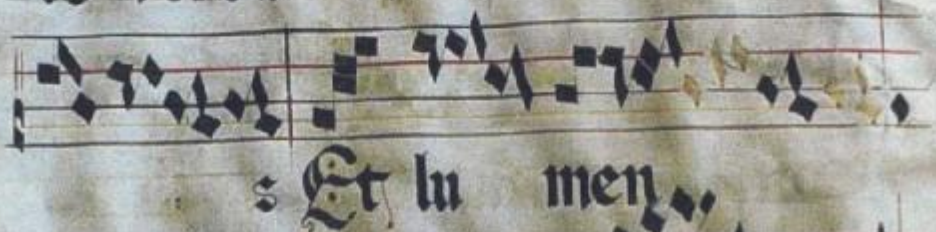 s Et lu men